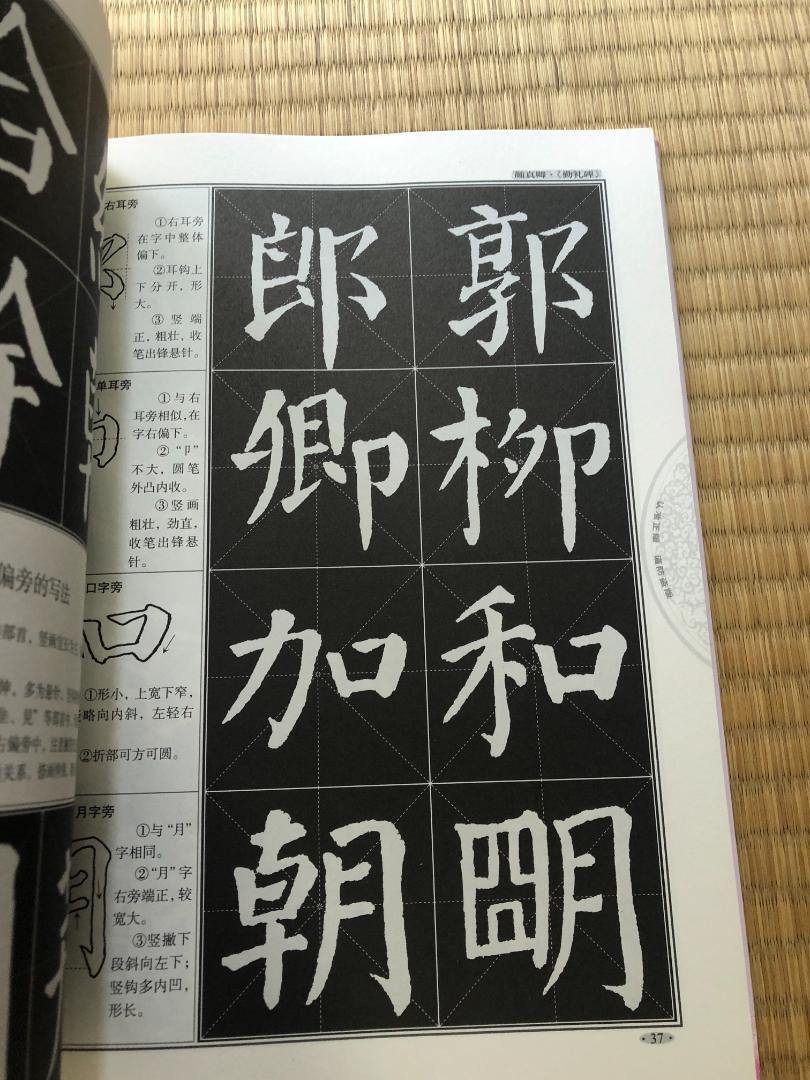 偏旁的写法
颜真卿·《勤礼碑》
右耳旁
①右耳旁
在字中整体
偏下。
②耳钩上
下分开，形
大。
③竖端
正，粗壮，收
笔出锋悬针。
郎 郭
单耳旁
①与右
耳旁相似，在
字右偏下。
②“卩”
不大，圆笔
外凸内收。
③竖画
粗壮，劲直，
收笔出锋悬
针。
卿 柳
口字旁
①形小，上宽下窄，
略向内斜，左轻右
②折部可方可圆。
加 和
月字旁
①与“月”
字相同。
②“月”字
右旁端正，较
宽大。
③竖撇下
段斜向左下；
竖钩多内凹，
形长。
朝 朙
·37·